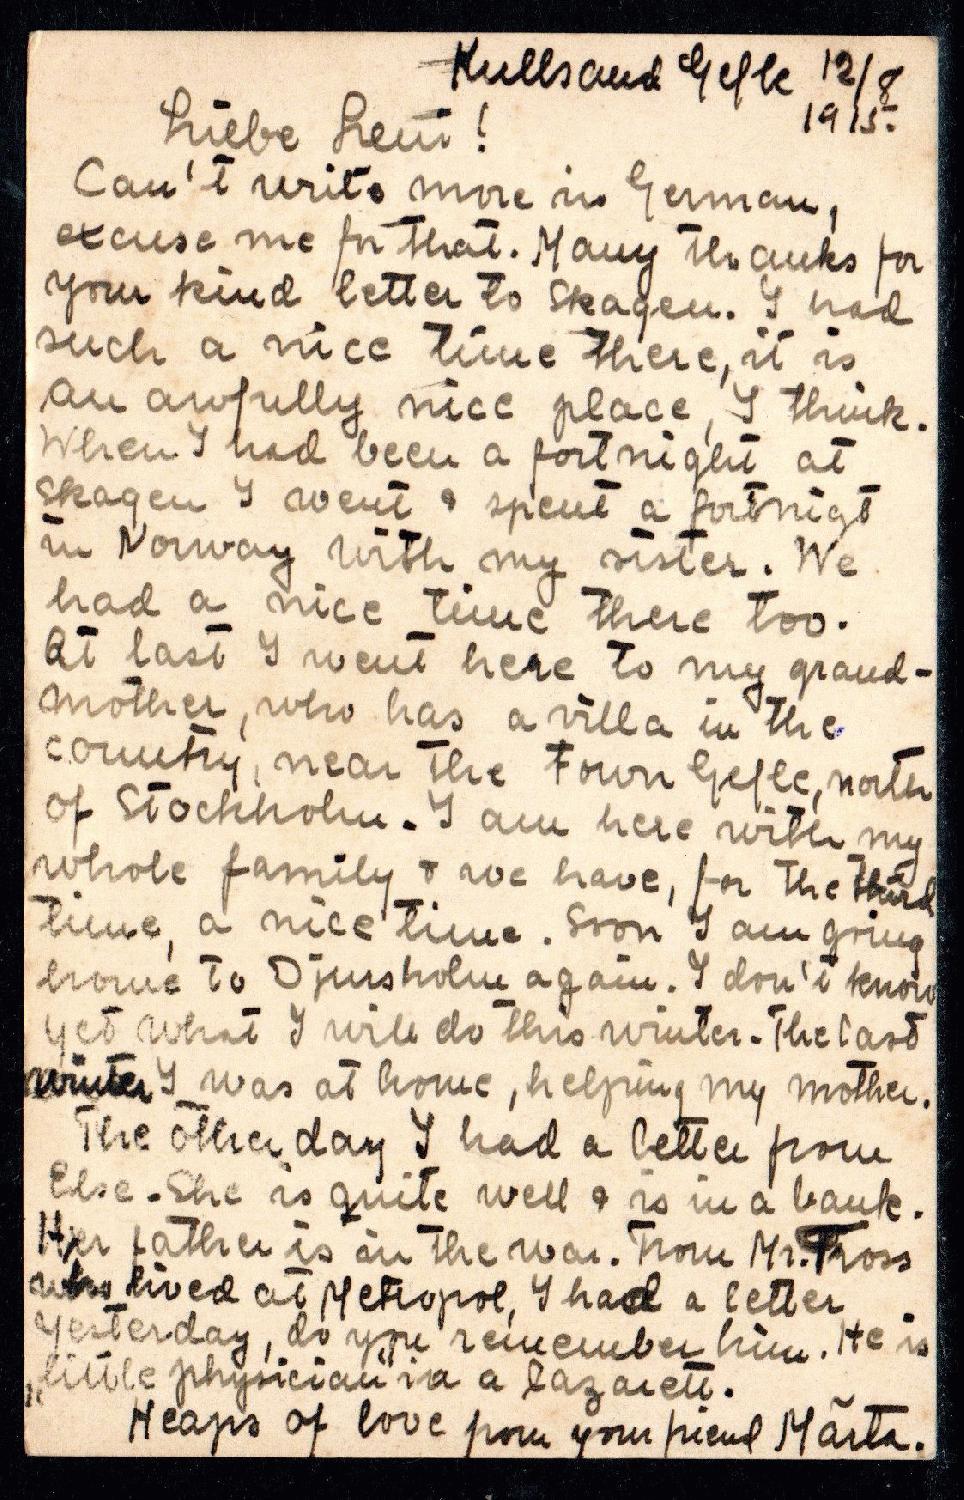 Kullsand Gefle 12/8
1915.
Liebe Leni!
Can't write more in German,
excuse me for that. Many thanks for
your kind letter to Skagen. I had
such a nice time there, it is
an awfully nice place, I think.
When I had been a fortnight at
Skagen I went & spent a fortnigt
in Norway with my sister. We
had a nice time there too.
At last I went here to my grand-
mother, who has a villa in the
country, near the Town Gefle, north
of Stockholm. I am here with my
whole family & we have, for the third
time, a nice time. Soon I am going
home to Djursholm again. I don't know
yet what I will do this winter. The last
winter I was at home, helping my mother.
The other day I had a letter from
Else. She is quite well & is in a bank.
Her father is in the war. From Mr. Tross
who lived at Metropol, I had a letter
yesterday, do you remember him. He is
„little physician" in a Lazarett.
Heaps of love from your friend Märta.